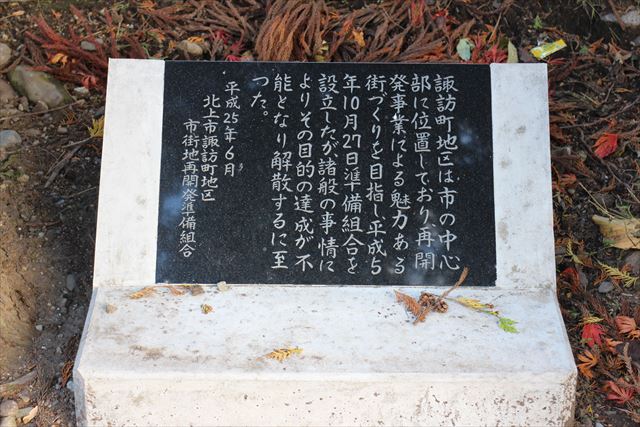 諏訪町地区は市の中心
部に位置しており、再開
発事業による魅力ある
街づくりを目指し、平成5
年10月27日準備組合を
設立したが、諸般の事情に
よりその目的の達成が不
能となり解散するに至
った。
平成25年6月
北上市諏訪町地区
市街地再開発準備組合